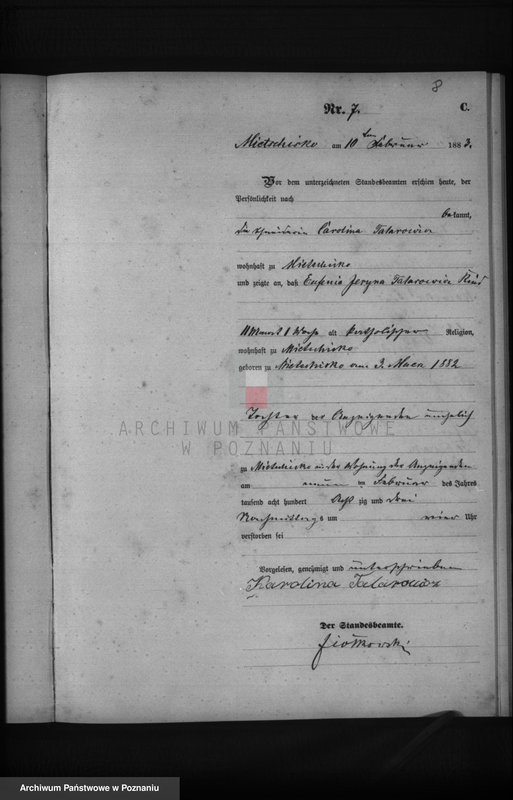 8
Nr. 7.
C.
Mietschisko am 10ten Februar 1883.
Vor dem unterzeichneten Standesbeamten erschien heute, der
Persönlichkeit nach
bekannt,
die Carolina Tatarowicz
wohnhaft zu Mietschisko
und zeigte an, daß Eufenia Tatarowicz Kind
11 Monat 1 Woche alt katholischer Religion,
wohnhaft zu Mietschisko
geboren zu Mietschisko am 3. 1882
Tochter der Anzeigenden unehelich
ARCHIWUM PAŃSTWOWE
W POZNANIU
zu Mietschisko in der Wohnung der Anzeigenden
am neun ten Februar des Jahres
tausend acht hundert acht zig und drei
Nachmittags um vier Uhr
verstorben sei
Vorgelesen, genehmigt und unterschrieben
Karolina Tatarowicz
Der Standesbeamte.
Archiwum Państwowe w Poznaniu